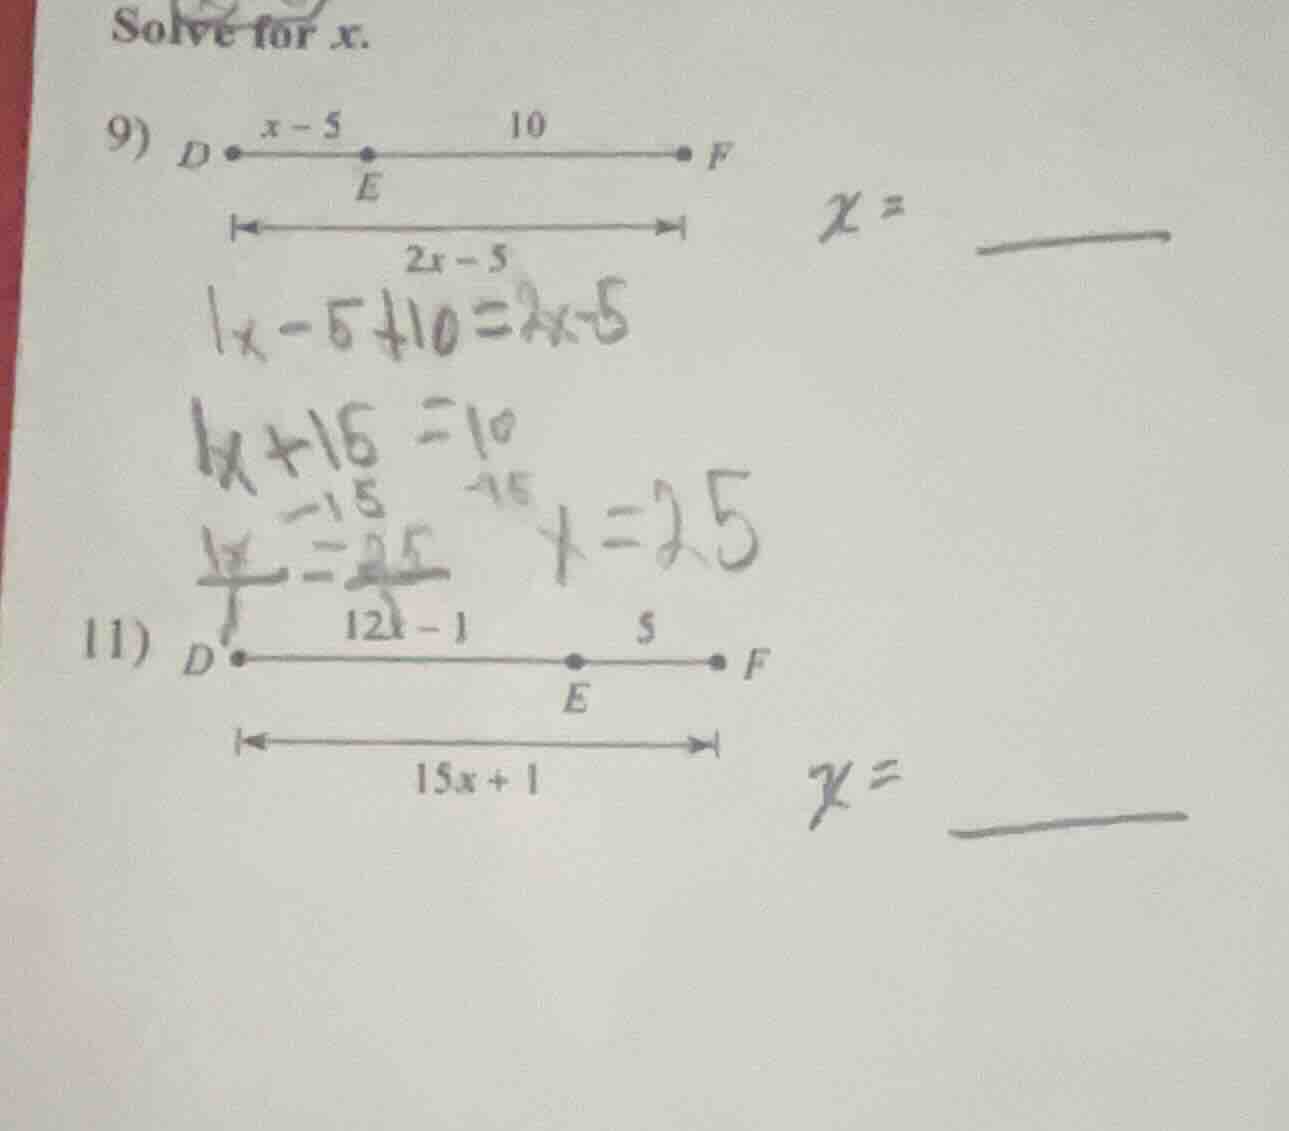 Solve for x.
9) D x – 5 E 10 F
2x – 5
x =
1x – 5 + 10 = 2x – 5
1x + 15 = 10
– 15 – 15
1x = 25
1 1
x = 25
11) D 12x – 1 E 5 F
15x + 1
x =